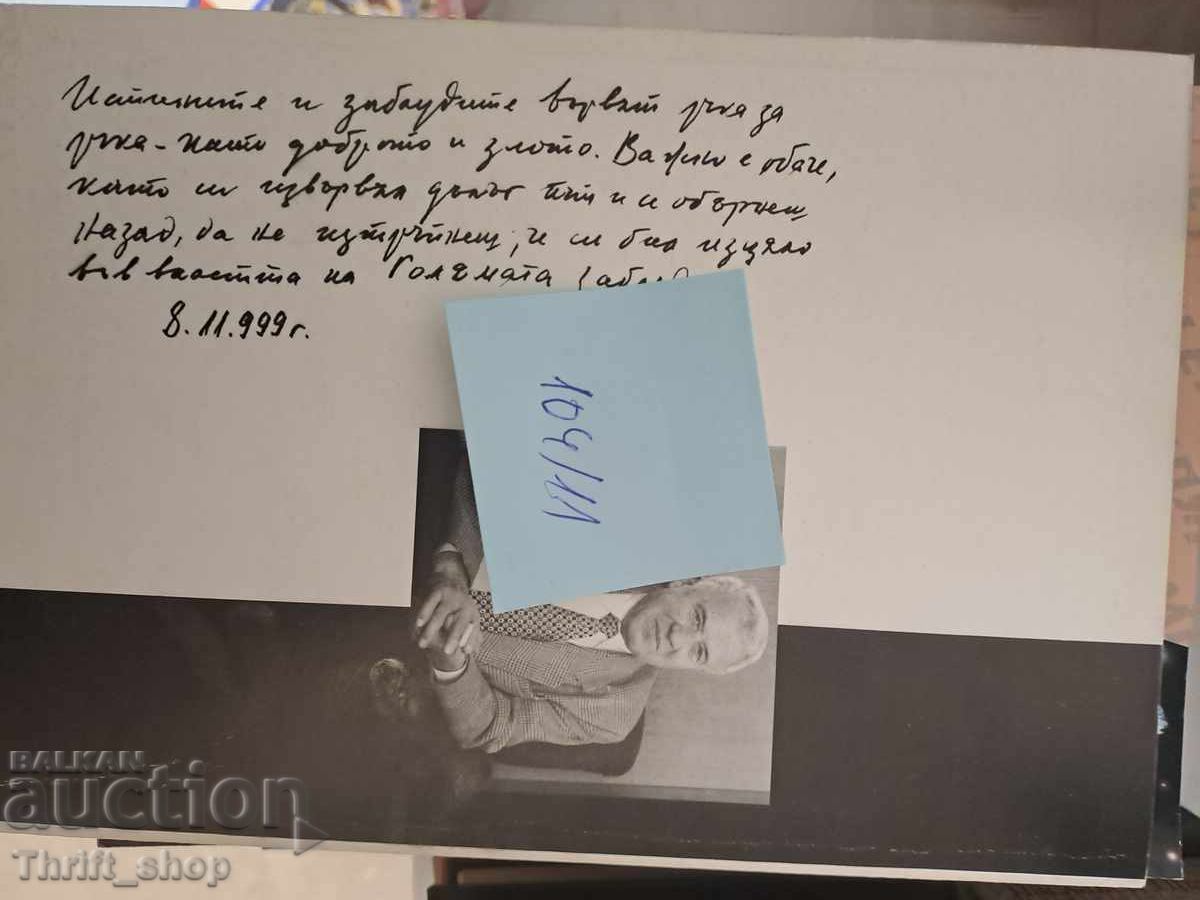 Истините и заблудите вървят ръка за
ръка - както доброто и злото. Важно е обаче,
като си извървял дълъг път и се обърнеш
назад, да не изтръпнеш, че си бил изцяло
във властта на Голямата
8.11.999г.
109/11
BALKAN
auction
Thrift_shop